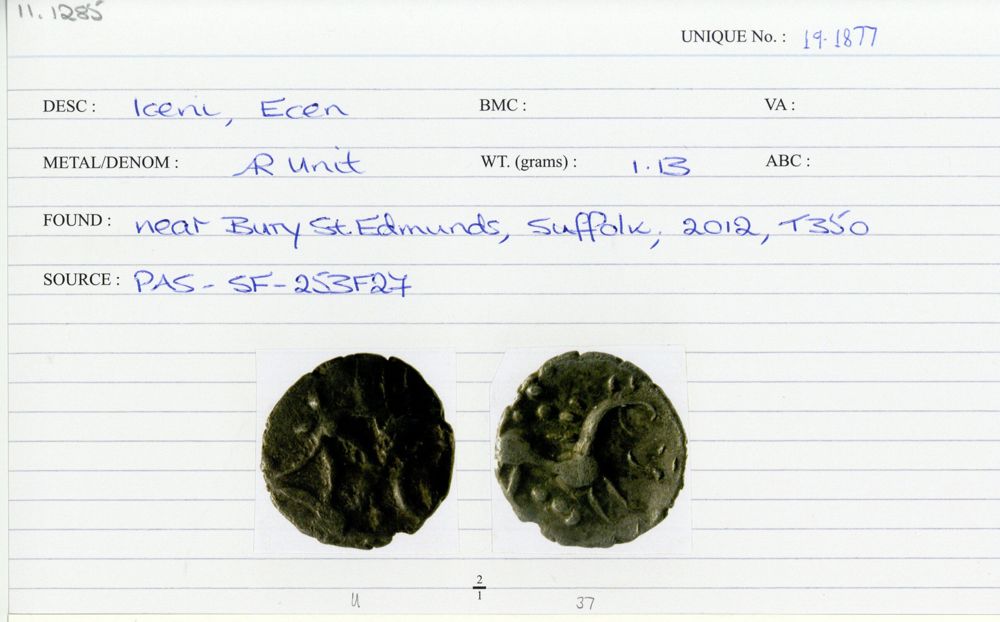 11.1285
UNIQUE No. : 19-1877
DESC : Iceni, Ecen BMC : VA :
METAL/DENOM : AR Unit WT. (grams) : 1.13 ABC :
FOUND : near Bury St. Edmunds, Suffolk, 2012, T350
SOURCE : PAS - SF - 253F27
2
1
U 37